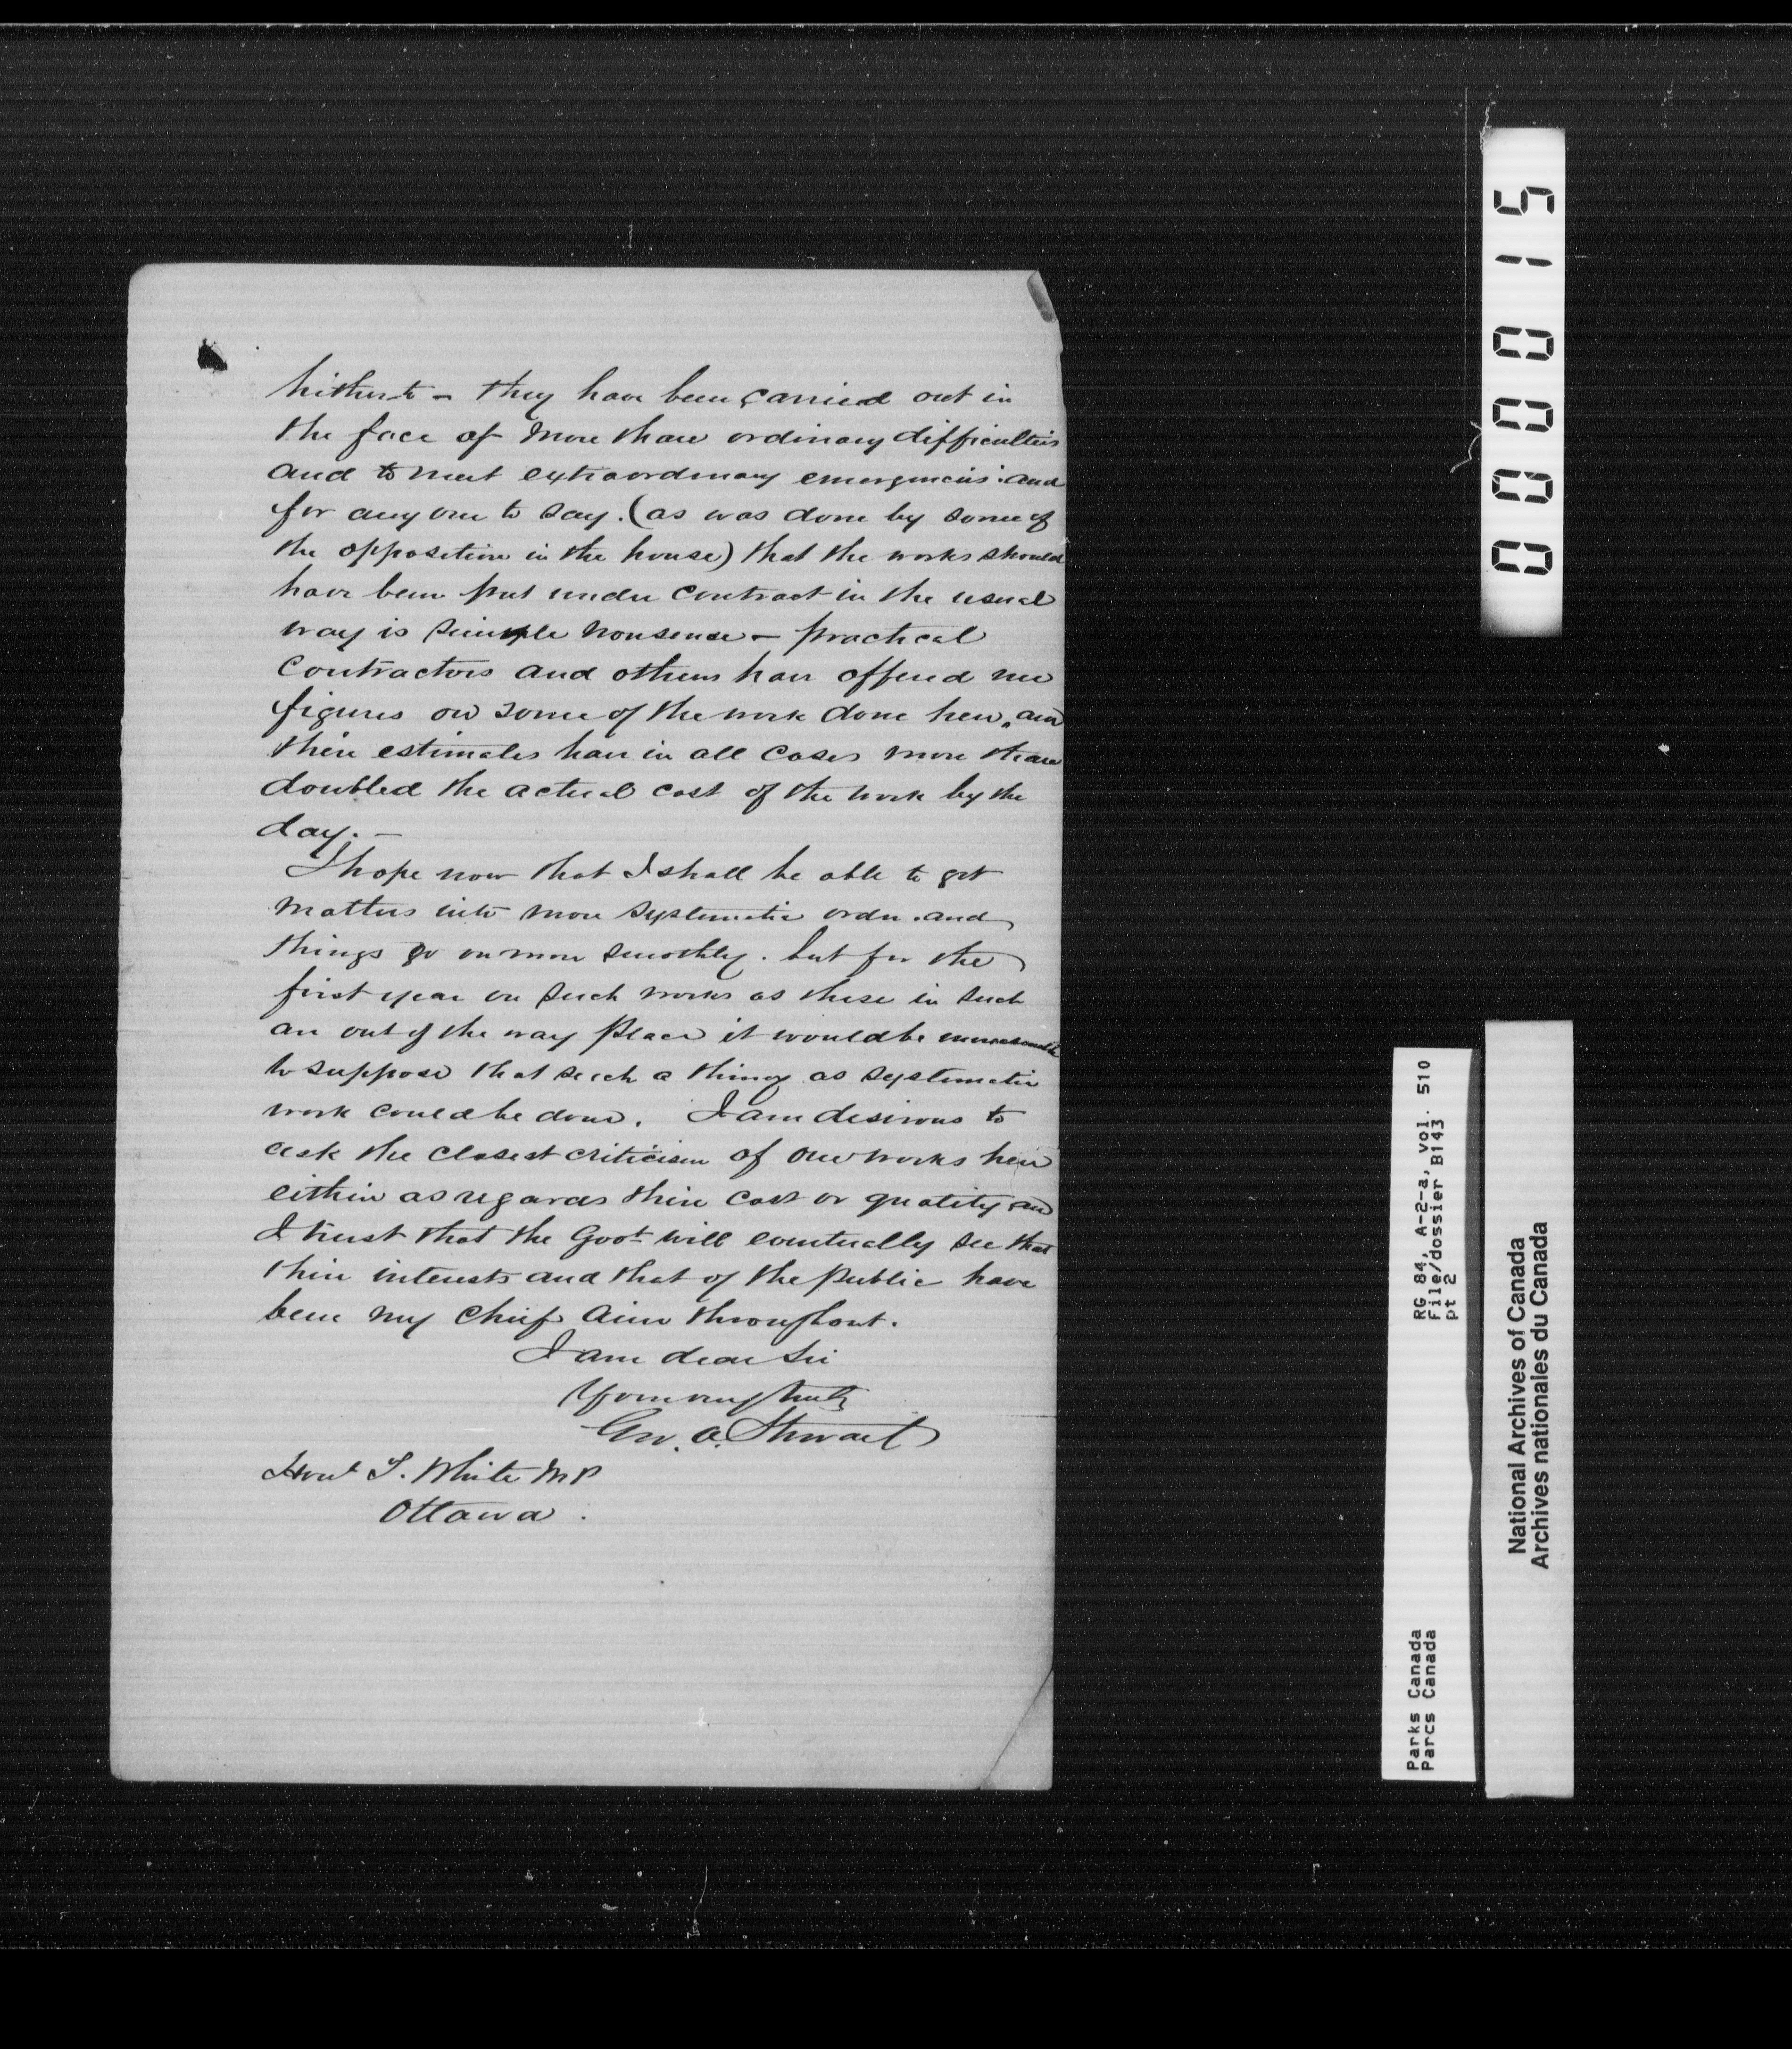 hitherto - they have been carried out in
the face of more than ordinary difficulties
and to meet extraordinary emergencies. and
for any one to say. (as was done by some of
the opposition in the house) that the works should
have been put under contract in the usual
way is simple nonsense - practical
Contractors and others have offered me
figures on some of the work done here, and
their estimates have in all cases more than
doubled the actual cost of the work by the
day. -
I hope now that I shall be able to get
matters into more systematic order. and
things go on more smoothly. but for the
first year on such works as these in such
an out of the way place it would be unreasonable
to suppose that such a thing as systematic
work could be done. I am desirous to
ask the closest criticism of our works here
either as regards their cost or quality and
I trust that the Govt will eventually see that
their interests and that of the public have
been my chief aim throughout.
I am dear Sir
Yours very truly
Geo. A. Stewart
Honl T. White M P
Ottawa.
000015
RG 84, A-2-a, vol. 510
File/dossier B143
pt 2
Parks Canada
Parcs Canada
National Archives of Canada
Archives nationales du Canada